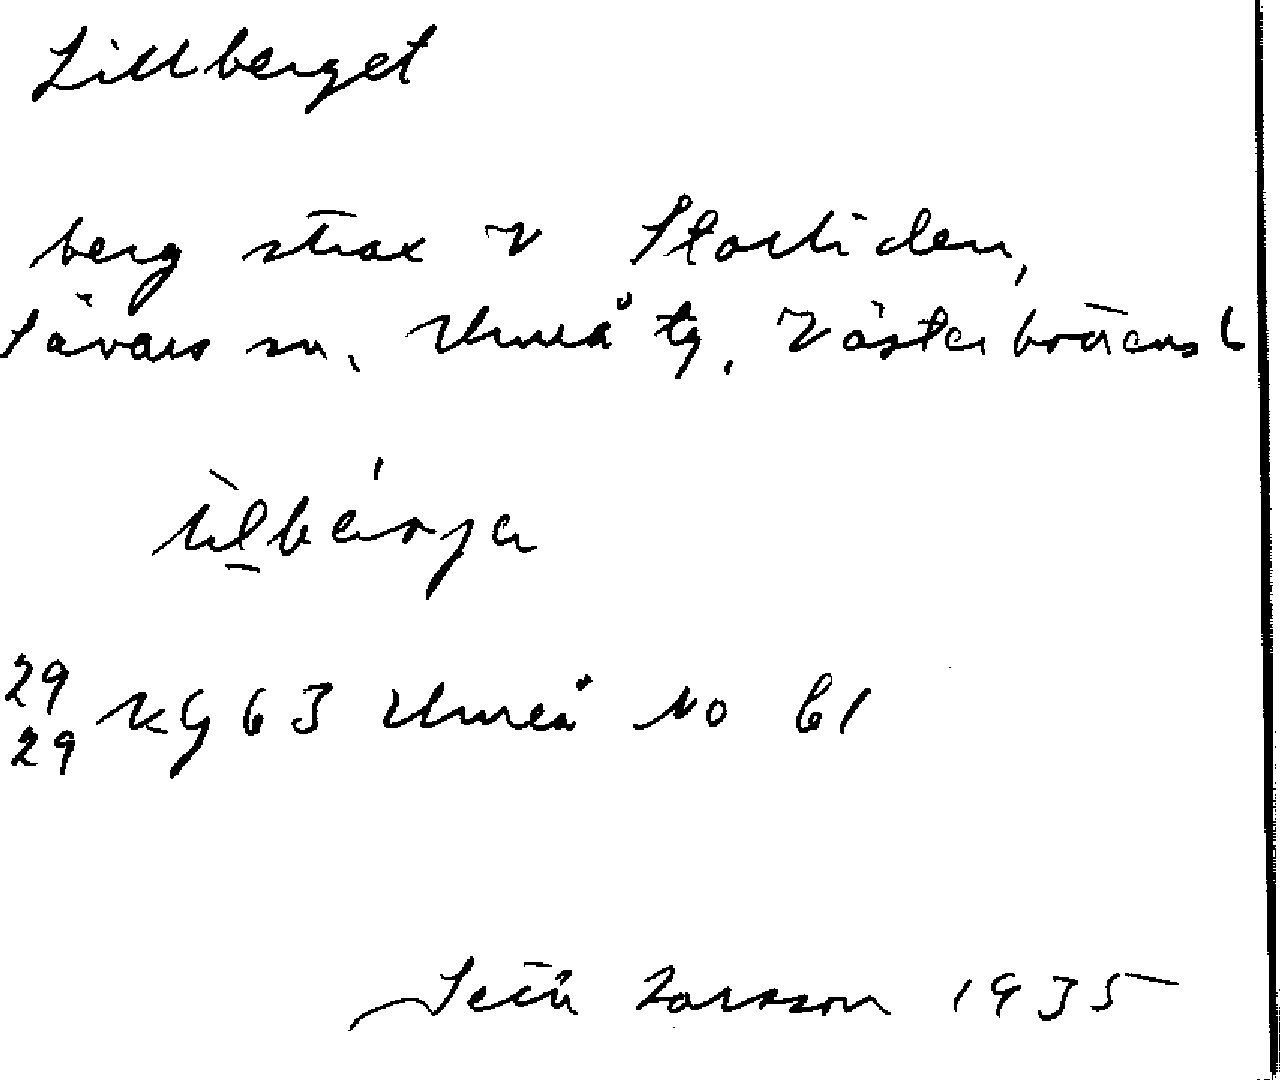 Lillberget
berg strax V Storliden,
Sävars sn. Umeå tg, Västerbottens l
29 Kg 63 Umeå No 61
29
Seth Larsson 1935